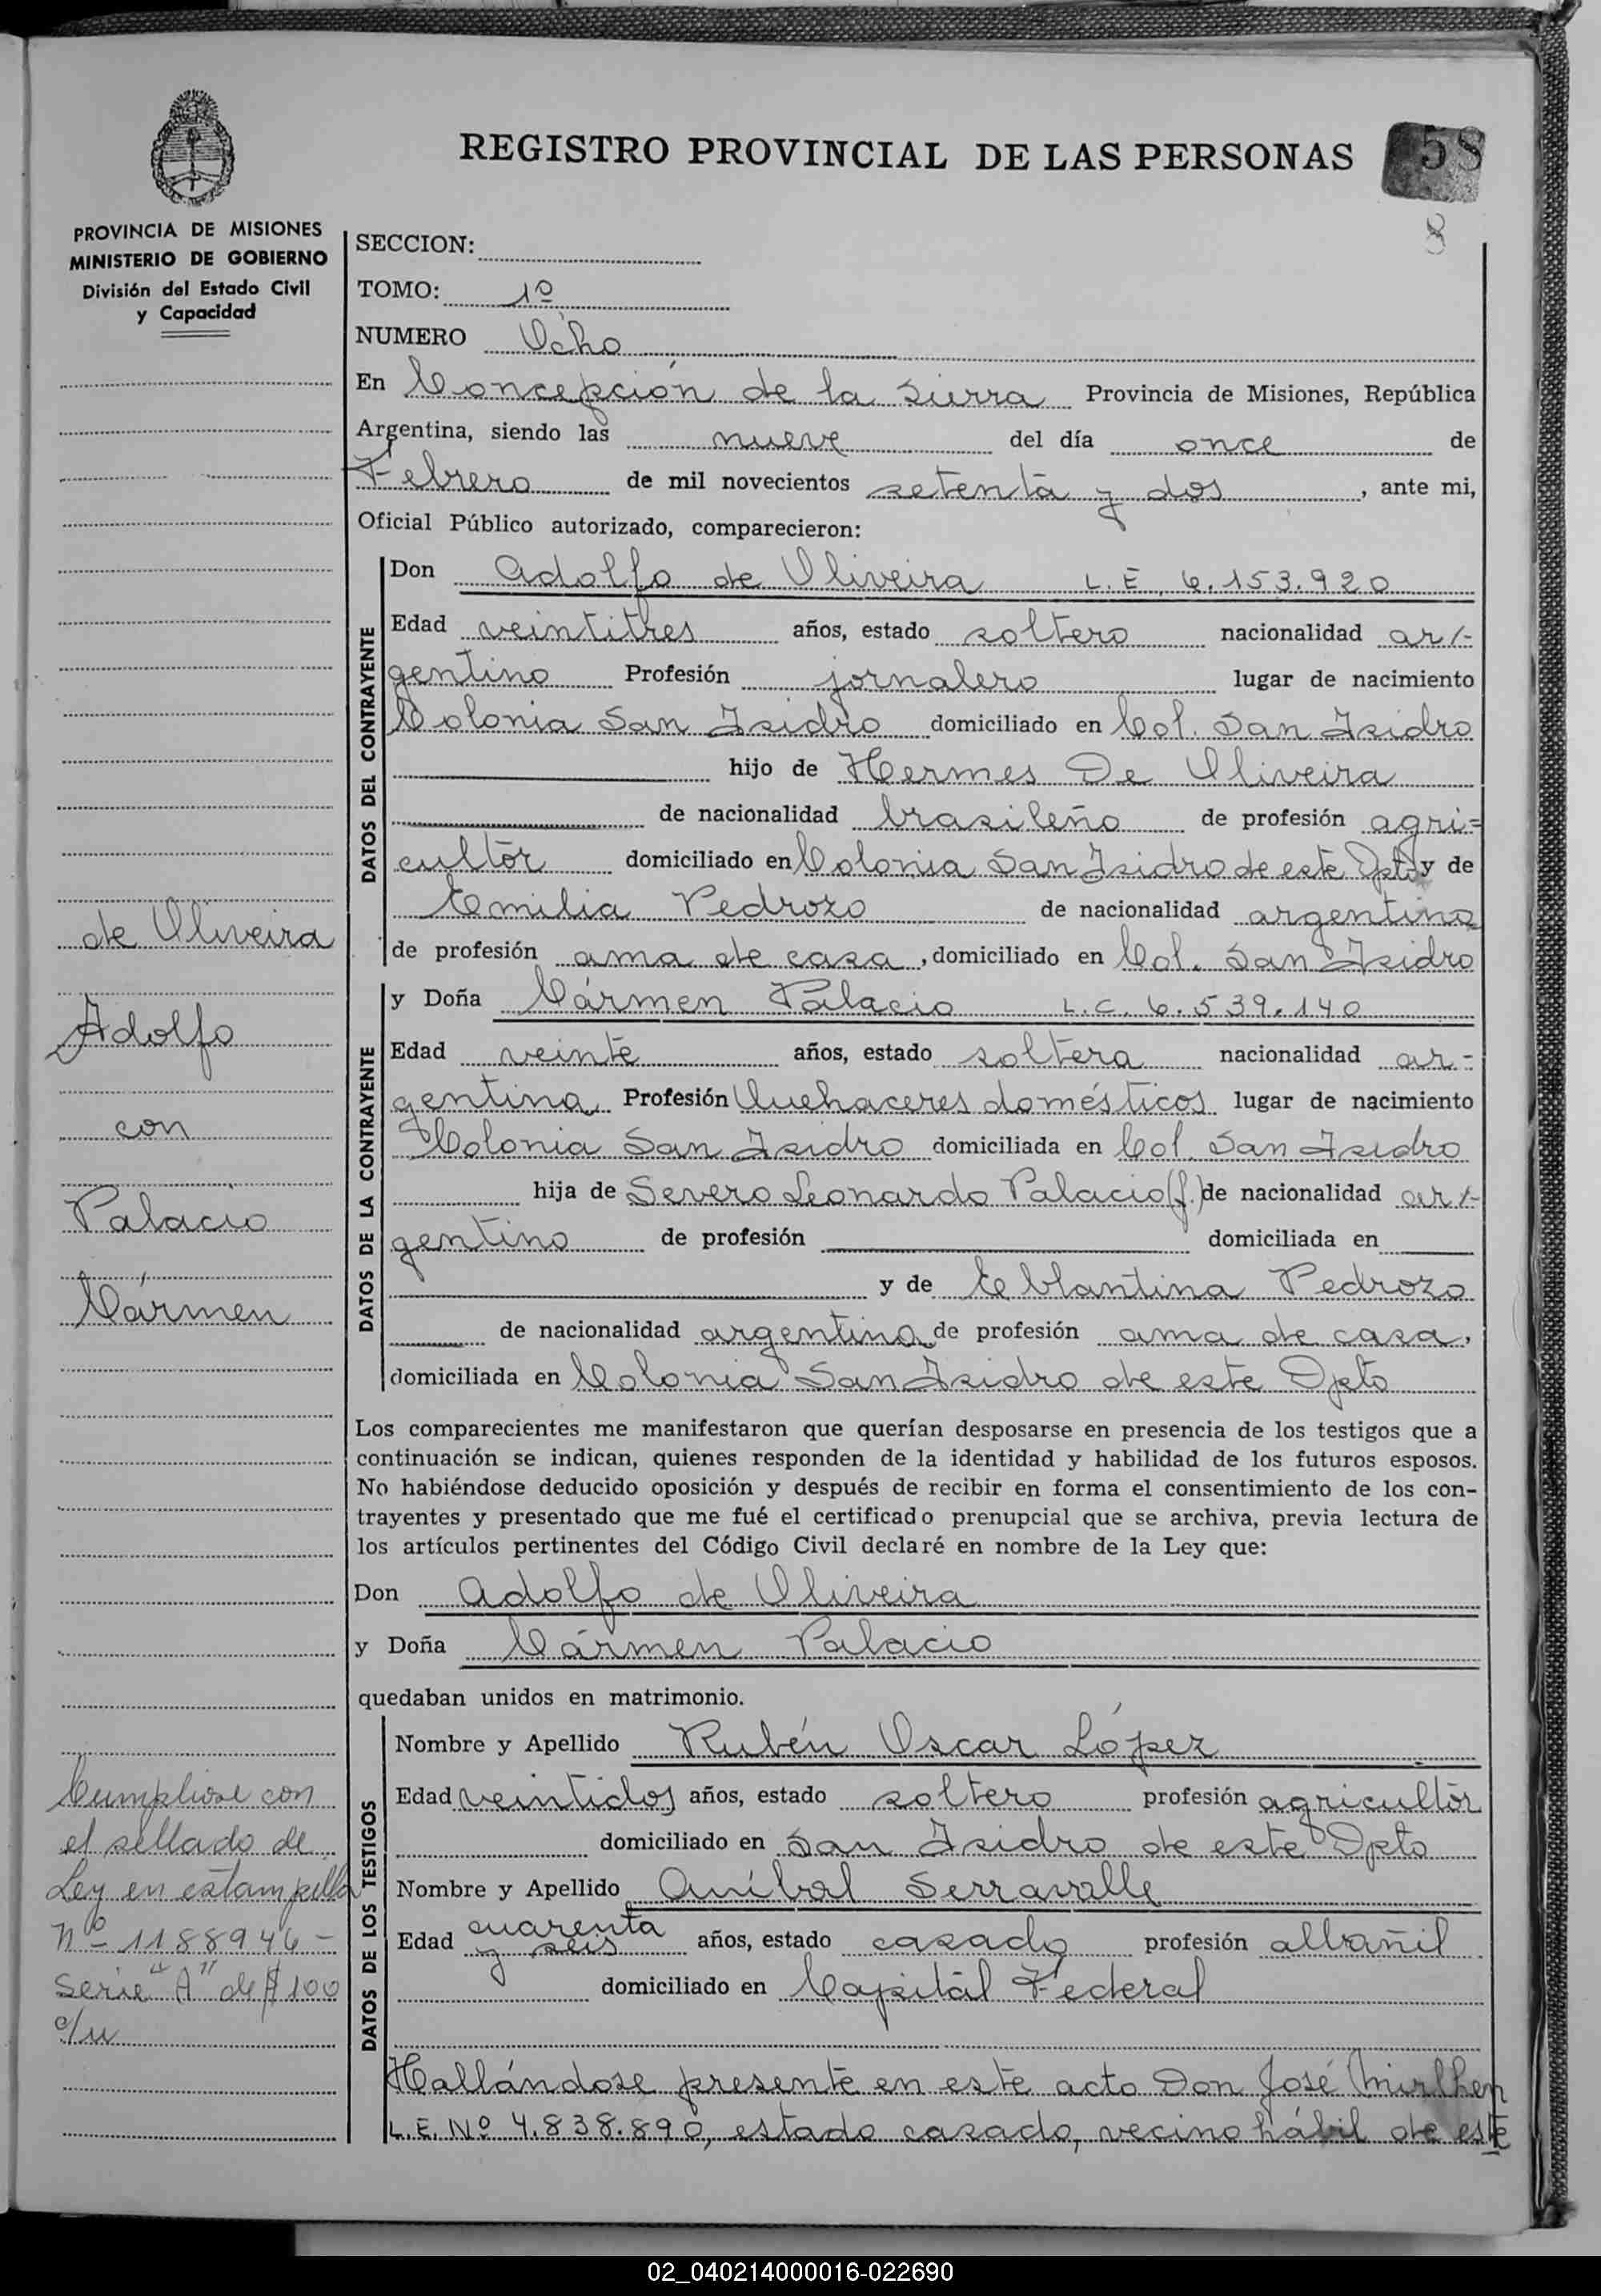 REGISTRO PROVINCIAL DE LAS PERSONAS
58
8
PROVINCIA DE MISIONES
MINISTERIO DE GOBIERNO
División del Estado Civil
y Capacidad
SECCION:
TOMO: 1º
NUMERO Ocho
En Concepción de la Sierra Provincia de Misiones, República
Argentina, siendo las nueve del día once de
Febrero de mil novecientos setenta y dos, ante mi,
Oficial Público autorizado, comparecieron:
DATOS DEL CONTRAYENTE
Don Adolfo de Oliveira L.E. 6.153.920
Edad veintitres años, estado soltero nacionalidad ar-
gentino Profesión jornalero lugar de nacimiento
Colonia San Isidro domiciliado en Col. San Isidro
hijo de Hermes De Oliveira
de nacionalidad brasileño de profesión agri=
cultor domiciliado en Colonia San Isidro de este Dpto y de
Emilia Pedrozo de nacionalidad argentina
de profesión ama de casa, domiciliado en Col. San Isidro
DATOS DE LA CONTRAYENTE
y Doña Cármen Palacio L.C. 6.539.140
Edad veinte años, estado soltera nacionalidad ar-
gentina Profesión Quehaceres domésticos lugar de nacimiento
Colonia San Isidro domiciliada en Col. San Isidro
hija de Severo Leonardo Palacio (f.) de nacionalidad ar-
gentino de profesión domiciliada en
y de Pedrozo
de nacionalidad argentina de profesión ama de casa,
domiciliada en Colonia San Isidro de este Dpto
Los comparecientes me manifestaron que querían desposarse en presencia de los testigos que a
continuación se indican, quienes responden de la identidad y habilidad de los futuros esposos.
No habiéndose deducido oposición y después de recibir en forma el consentimiento de los con-
trayentes y presentado que me fué el certificado prenupcial que se archiva, previa lectura de
los artículos pertinentes del Código Civil declaré en nombre de la Ley que:
Don Adolfo de Oliveira
y Doña Cármen Palacio
quedaban unidos en matrimonio.
DATOS DE LOS TESTIGOS
Nombre y Apellido Rubén Oscar López
Edad veintidos años, estado soltero profesión agricultor
domiciliado en San Isidro de este Dpto
Nombre y Apellido Aníbal Serravalle
Edad cuarenta y seis años, estado casado profesión albañil
domiciliado en Capital Federal
Hallándose presente en este acto Don José
L.E. Nº 4.838.890, estado casado, vecino hábil de este
de Oliveira
Adolfo
con
Palacio
Cármen
Cumpliose con
el sellado de
Ley en estampilla
Nº 1188946-
Serie "A" de $100
c/u
02_040214000016-022690